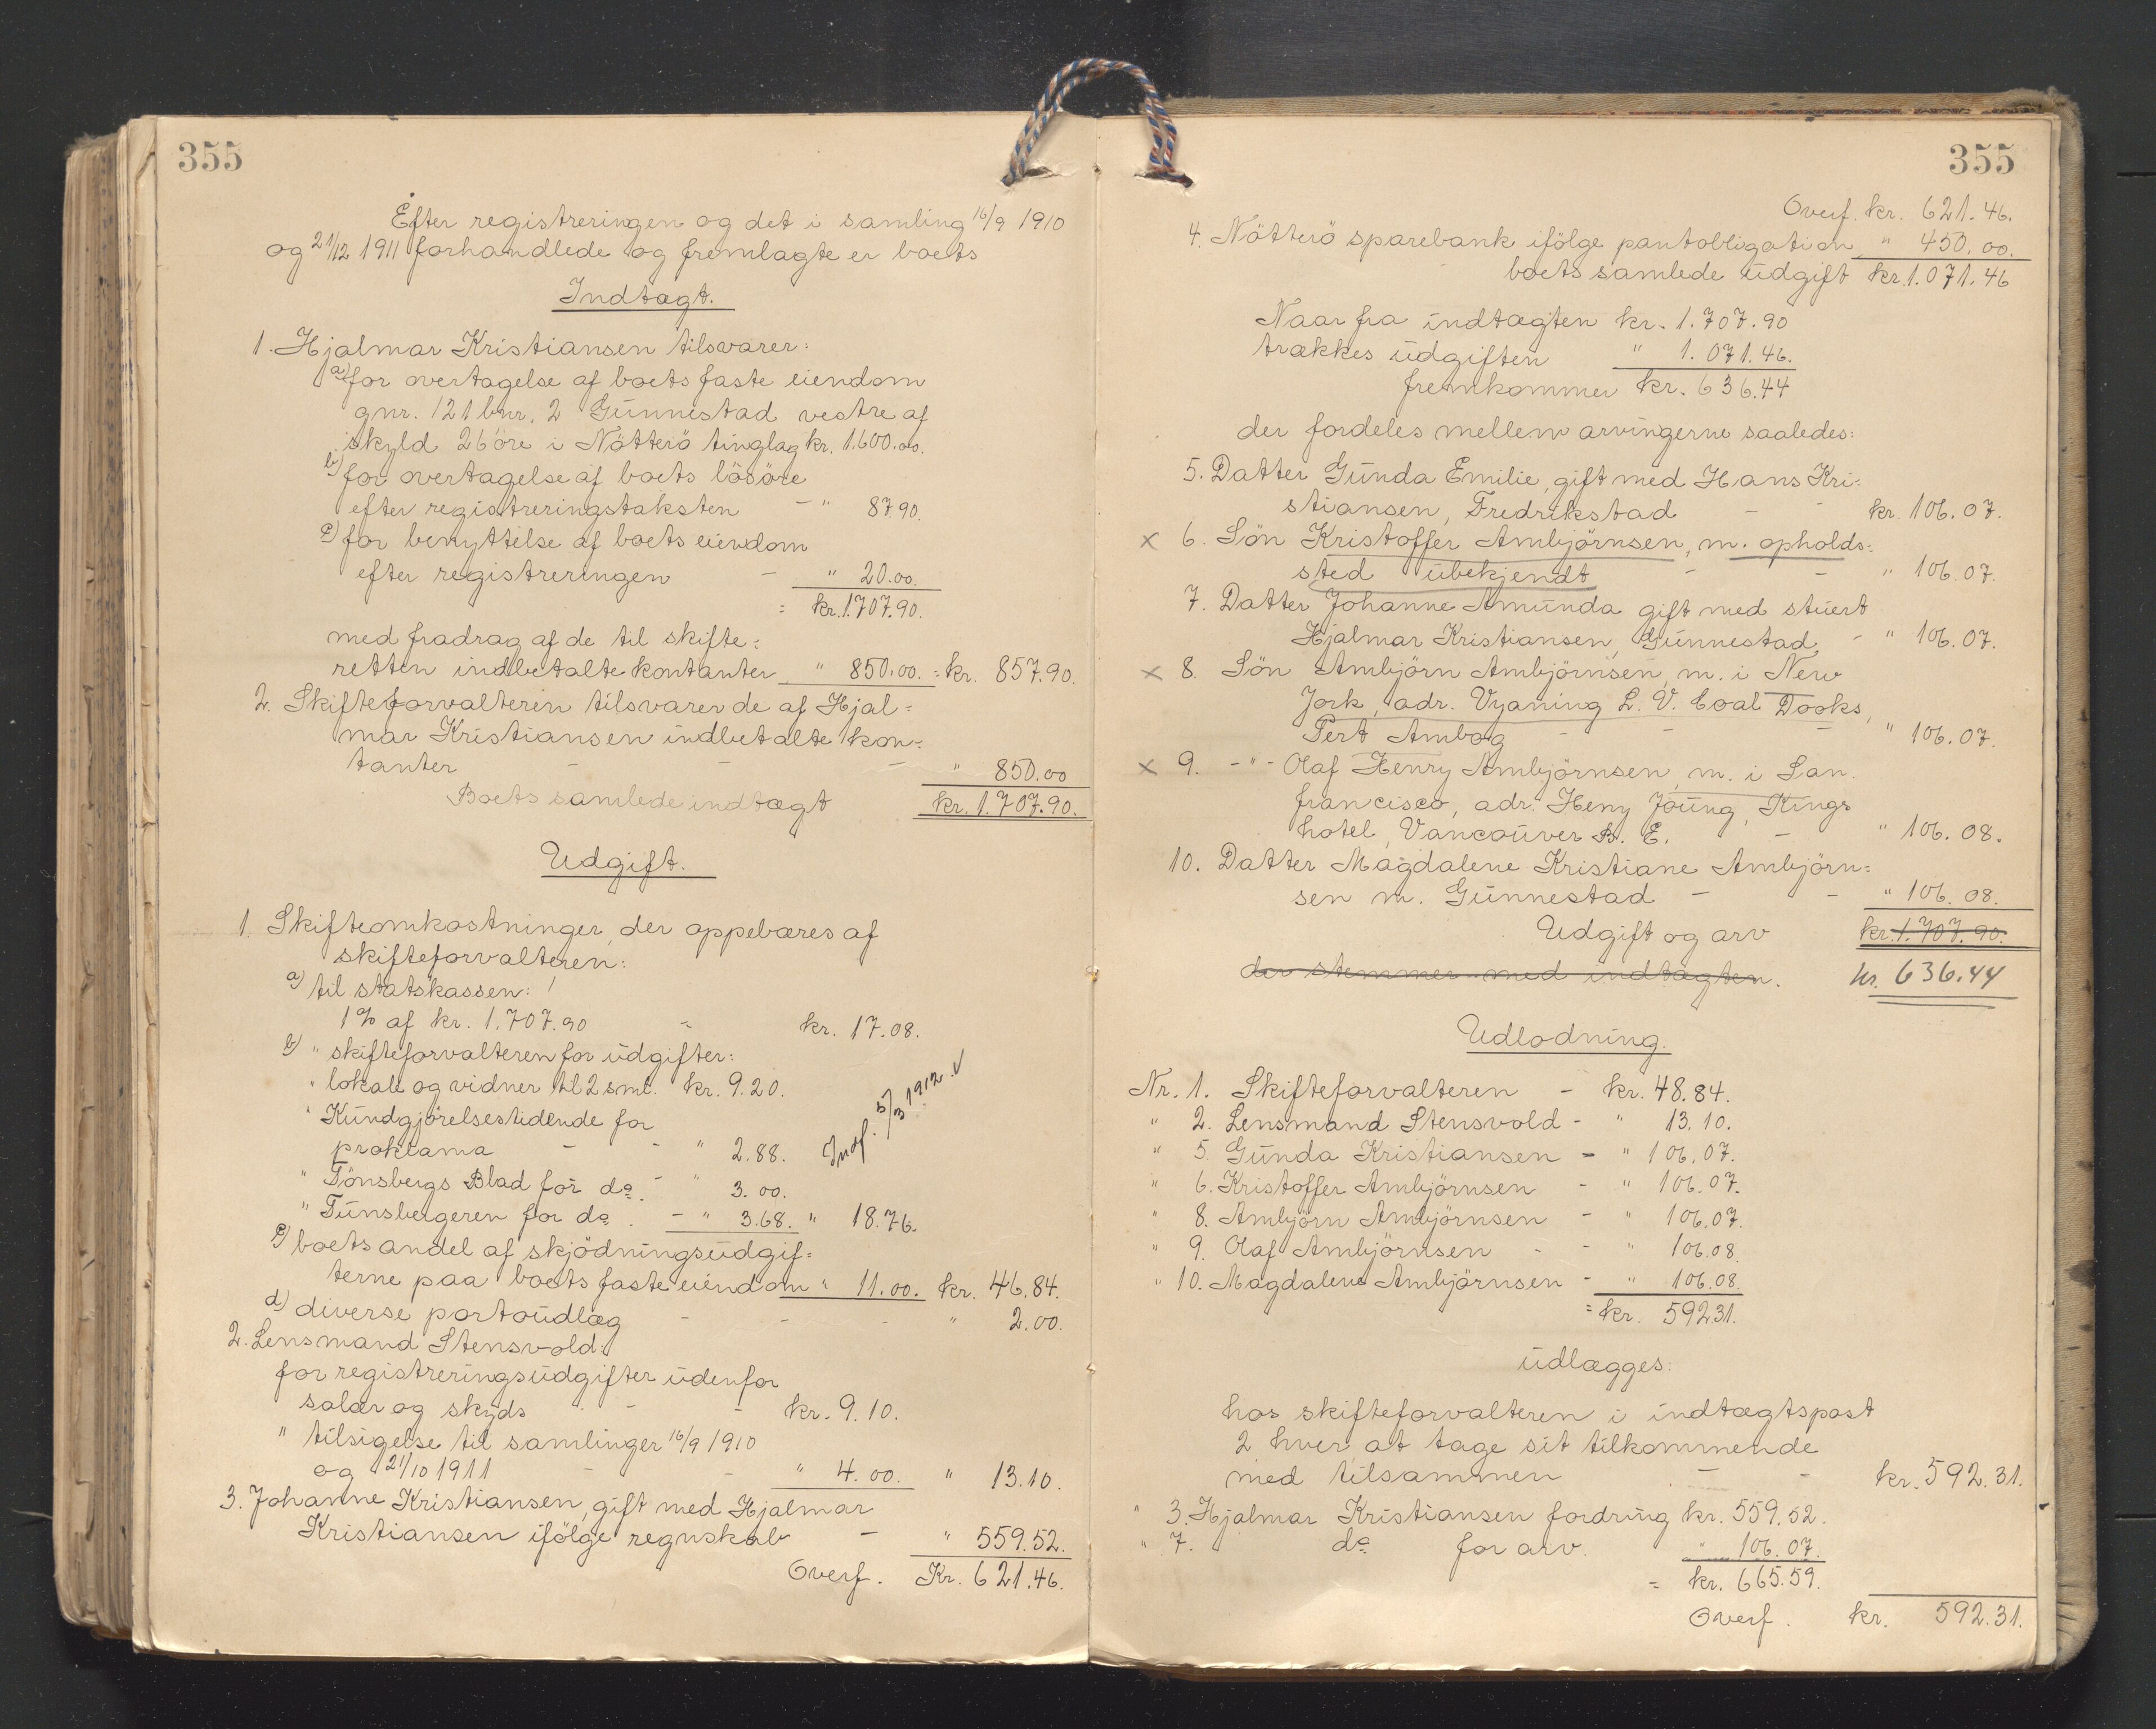 355
Efter registreringen og det i samling 16/9 1910
og 21/12 1911 forhandlede og fremlagte er boets
Indtægt.
1. Hjalmar Kristiansen tilsvarer:
a) for overtagelse af boets faste eiendom
gnr. 121 bnr. 2 Gunnestad vestre af
skyld 26 öre i Nötterö tinglag kr. 1.600.00.
b) for overtagelse af boets lösöre
efter registreringstaksten - " 87.90.
c) for benyttelse af boets eiendom
efter registreringen - " 20.00.
= kr. 1.707.90.
med fradrag af de til skifte=
retten indbetalte kontanter " 850.00. = kr. 857.90.
2. Skifteforvalteren tilsvarer de af Hjal=
mar Kristiansen indbetalte kon=
tanter - - - " 850.00
Boets samlede indtægt kr. 1.707.90.
Udgift.
1. Skifteomkostninger, der oppebæres af
skifteforvalteren:
a) til statskassen:
1% af kr. 1.707.90 - kr. 17.08.
b) " skifteforvalteren for udgifter:
" lokale og vidner til 2 sml. kr. 9.20.
" Kundgjörelsestidende for
proklama - - " 2.88.
Indf. 5/3 1912. √
" Tönsbergs Blad for do. - " 3.00.
" Tunsbergeren for do. - " 3.68. " 18.76.
c) boets andel af skjödningsudgif=
terne paa boets faste eiendom " 11.00. kr. 46.84.
d) diverse portoudlæg - - - " 2.00.
2. Lensmand Stensvold:
for registreringsudgifter udenfor
salær og skyds - - kr. 9.10.
" tilsigelse til samlinger 16/9 1910
og 21/10 1911 - - " 4.00. " 13.10.
3. Johanne Kristiansen, gift med Hjalmar
Kristiansen ifölge regnskab - " 559.52.
Overf. Kr. 621.46.
355
Overf. kr. 621.46.
4. Nötterö sparebank ifölge pantobligation " 450.00.
boets samlede udgift kr. 1.071.46
Naar fra indtægten kr. 1.707.90
trækkes udgiften " 1.071.46.
fremkommer kr. 636.44
der fordeles mellem arvingerne saaledes:
5. Datter Gunda Emilie, gift med Hans Kri=
stiansen, Fredrikstad - - kr. 106.07.
x 6. Sön Kristoffer Ambjörnsen, m. opholds=
sted ubekjendt - - " 106.07.
7. Datter Johanne Amunda gift med stuert
Hjalmar Kristiansen, Gunnestad, - " 106.07.
x 8. Sön Ambjörn Ambjörnsen, m. i New
Jork, adr. Vyaning L. V. Coal Dooks,
Pert Ambog - - - " 106.07.
x 9. - " - Olaf Henry Ambjörnsen, m. i San
francisco, adr. Heny Joung, Kings
hotel, Vancouver B. E. - " 106.08.
10. Datter Magdalene Kristiane Ambjörn=
sen m. Gunnestad - - " 106.08.
Udgift og arv kr. 1.707.90.
der stemmer med indtægten. kr. 636.44
Udlodning.
Nr. 1. Skifteforvalteren - kr. 48.84.
" 2. Lensmand Stensvold - " 13.10.
" 5. Gunda Kristiansen - " 106.07.
" 6. Kristoffer Ambjörnsen - " 106.07.
" 8. Ambjörn Ambjörnsen - " 106.07.
" 9. Olaf Ambjörnsen - - " 106.08.
" 10. Magdalene Ambjörnsen - " 106.08.
= kr. 592.31.
udlægges:
hos skifteforvalteren i indtægtspost
2 hver at tage sit tilkommende
med tilsammen - - kr. 592.31.
" 3. Hjalmar Kristiansen fordring kr. 559.52.
" 7. do. for arv. " 106.07.
= kr. 665.59.
Overf. kr. 592.31.